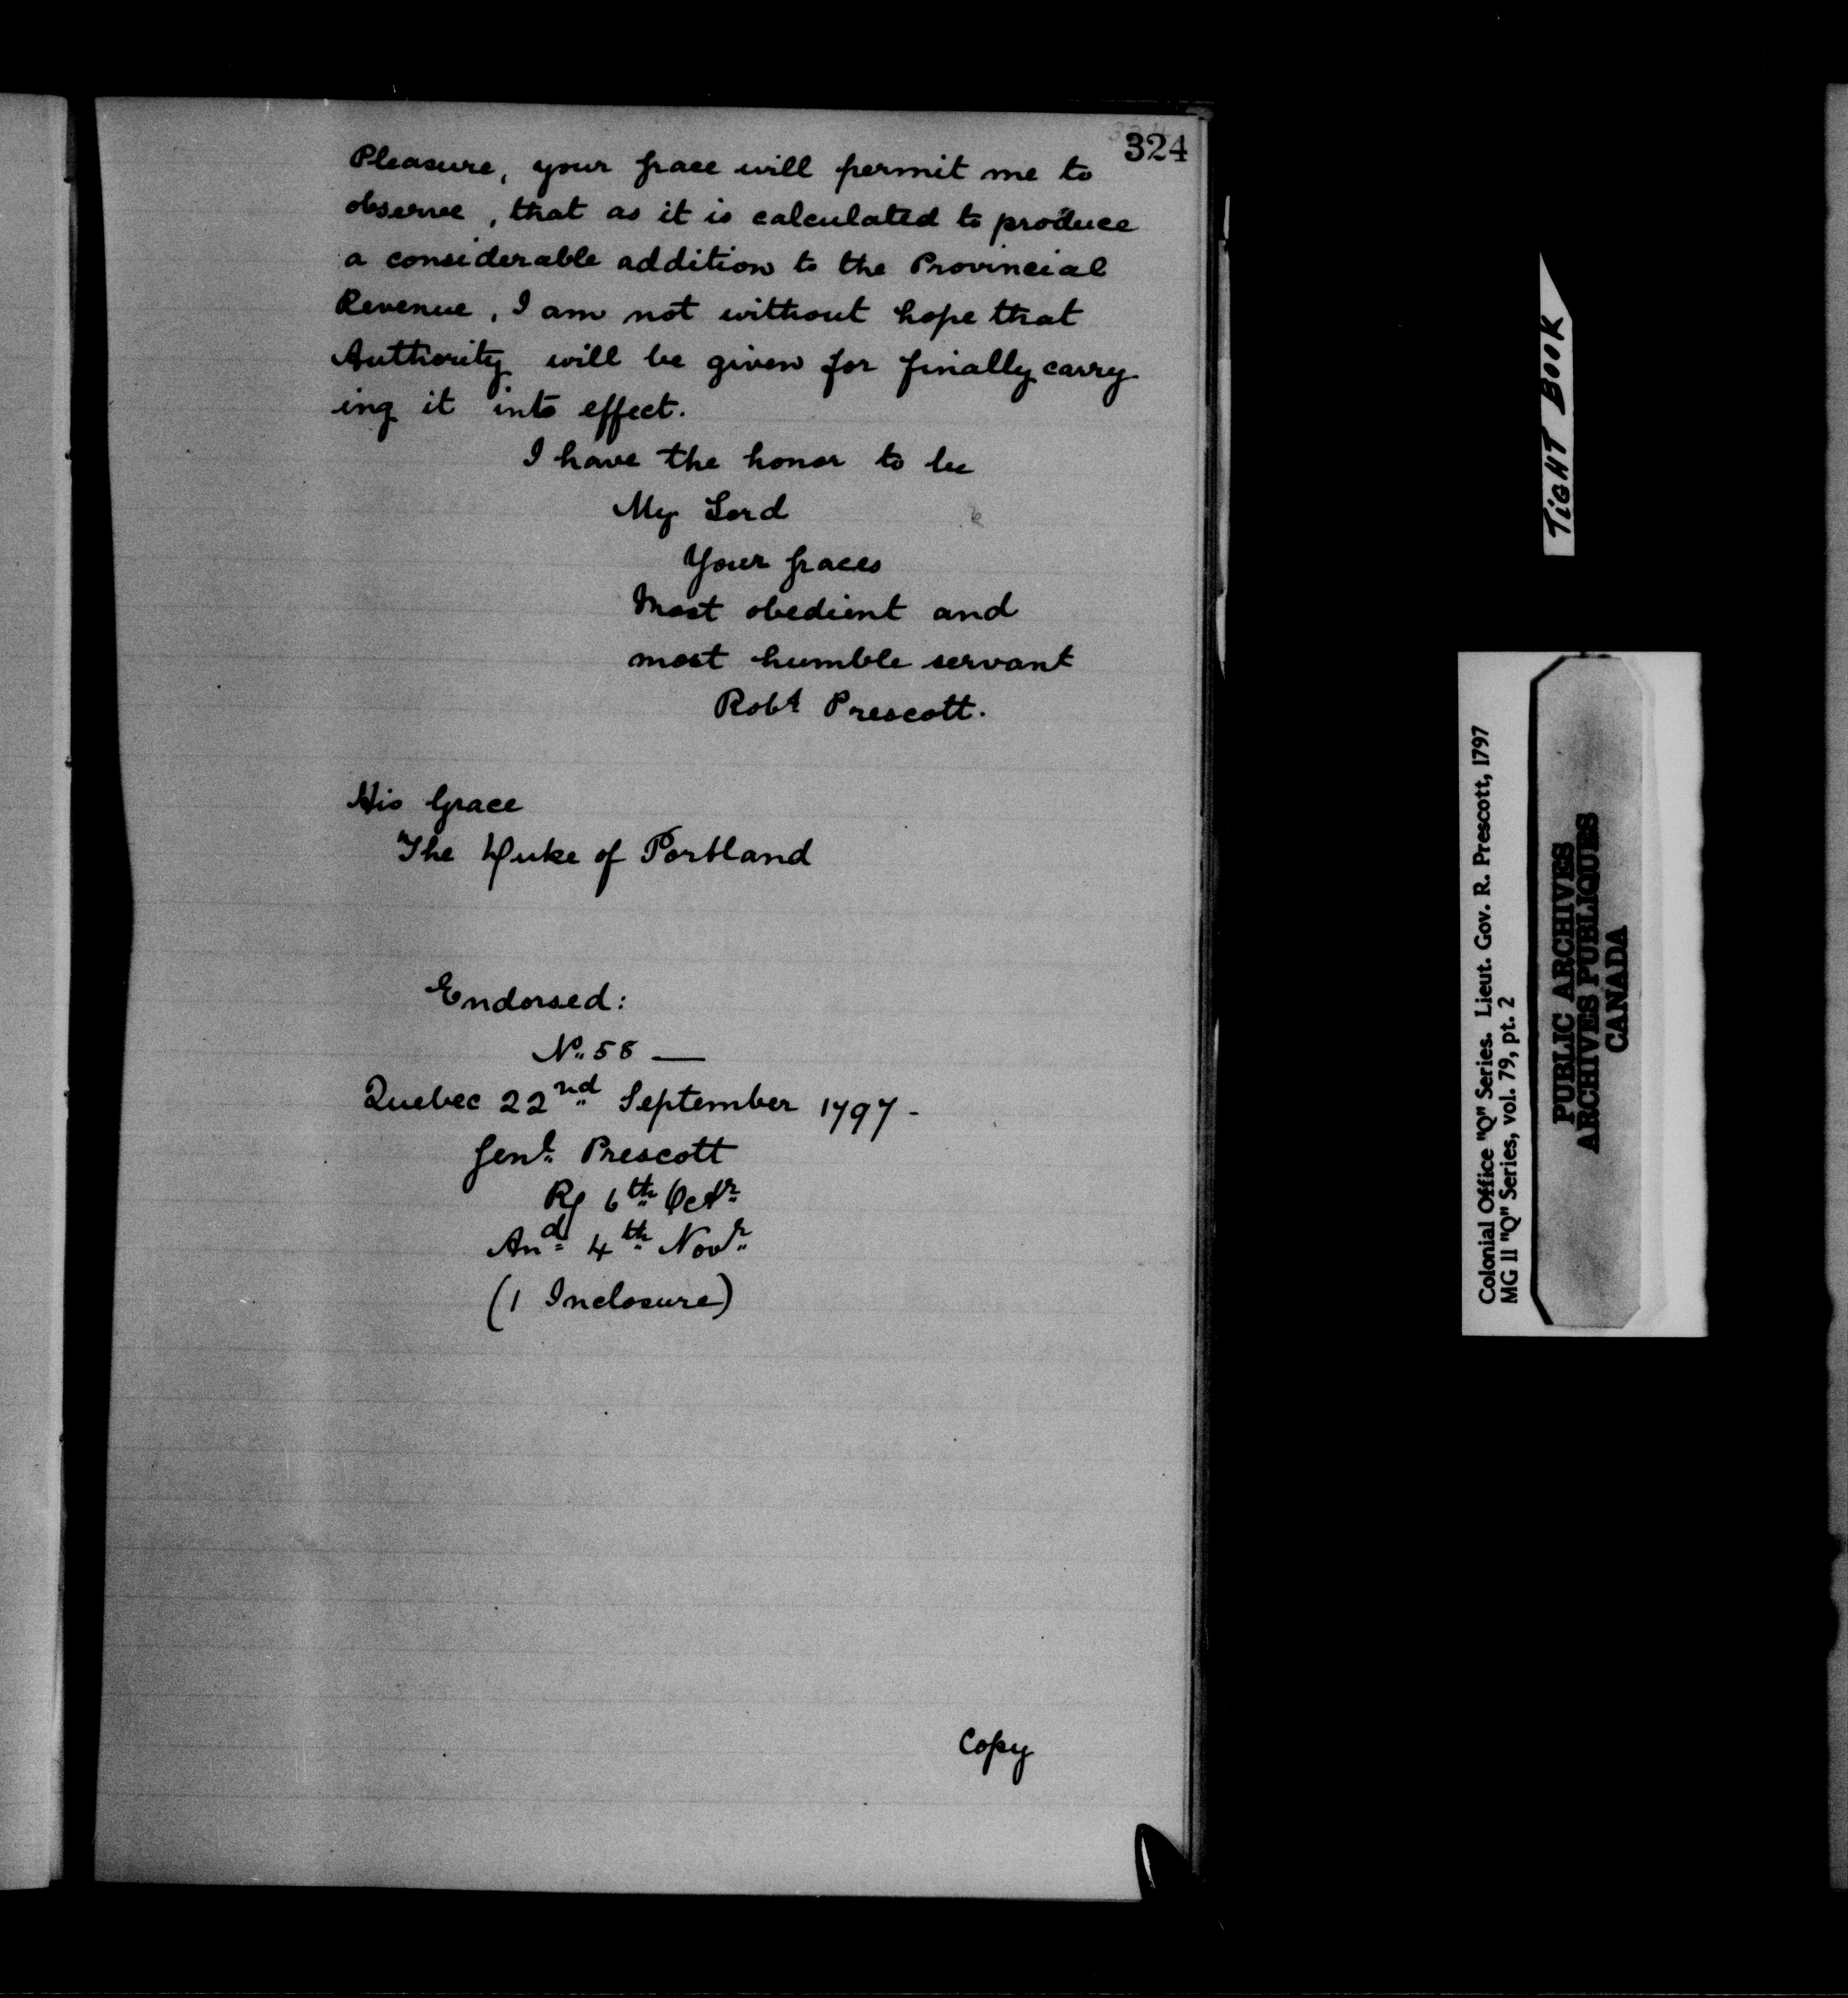 324
Pleasure, your Grace will permit me to
observe, that as it is calculated to produce
a considerable addition to the Provincial
Revenue, I am not without hope that
Authority will be given for finally carry-
ing it into effect.
I have the honor to be
My Lord
Your Graces
Most obedient and
most humble servant
Robt Prescott.
His Grace
The Duke of Portland
Endorsed:
No. 58 —
Quebec 22nd September 1797 -
Genl. Prescott
6th Octr.
And 4th Novr.
(1 Inclosure)
Copy
TIGHT BOOK
Colonial Office "Q" Series. Lieut. Gov. R. Prescott, 1797
MG 11 "Q" Series, vol. 79, pt. 2
PUBLIC ARCHIVES
ARCHIVES PUBLIQUES
CANADA